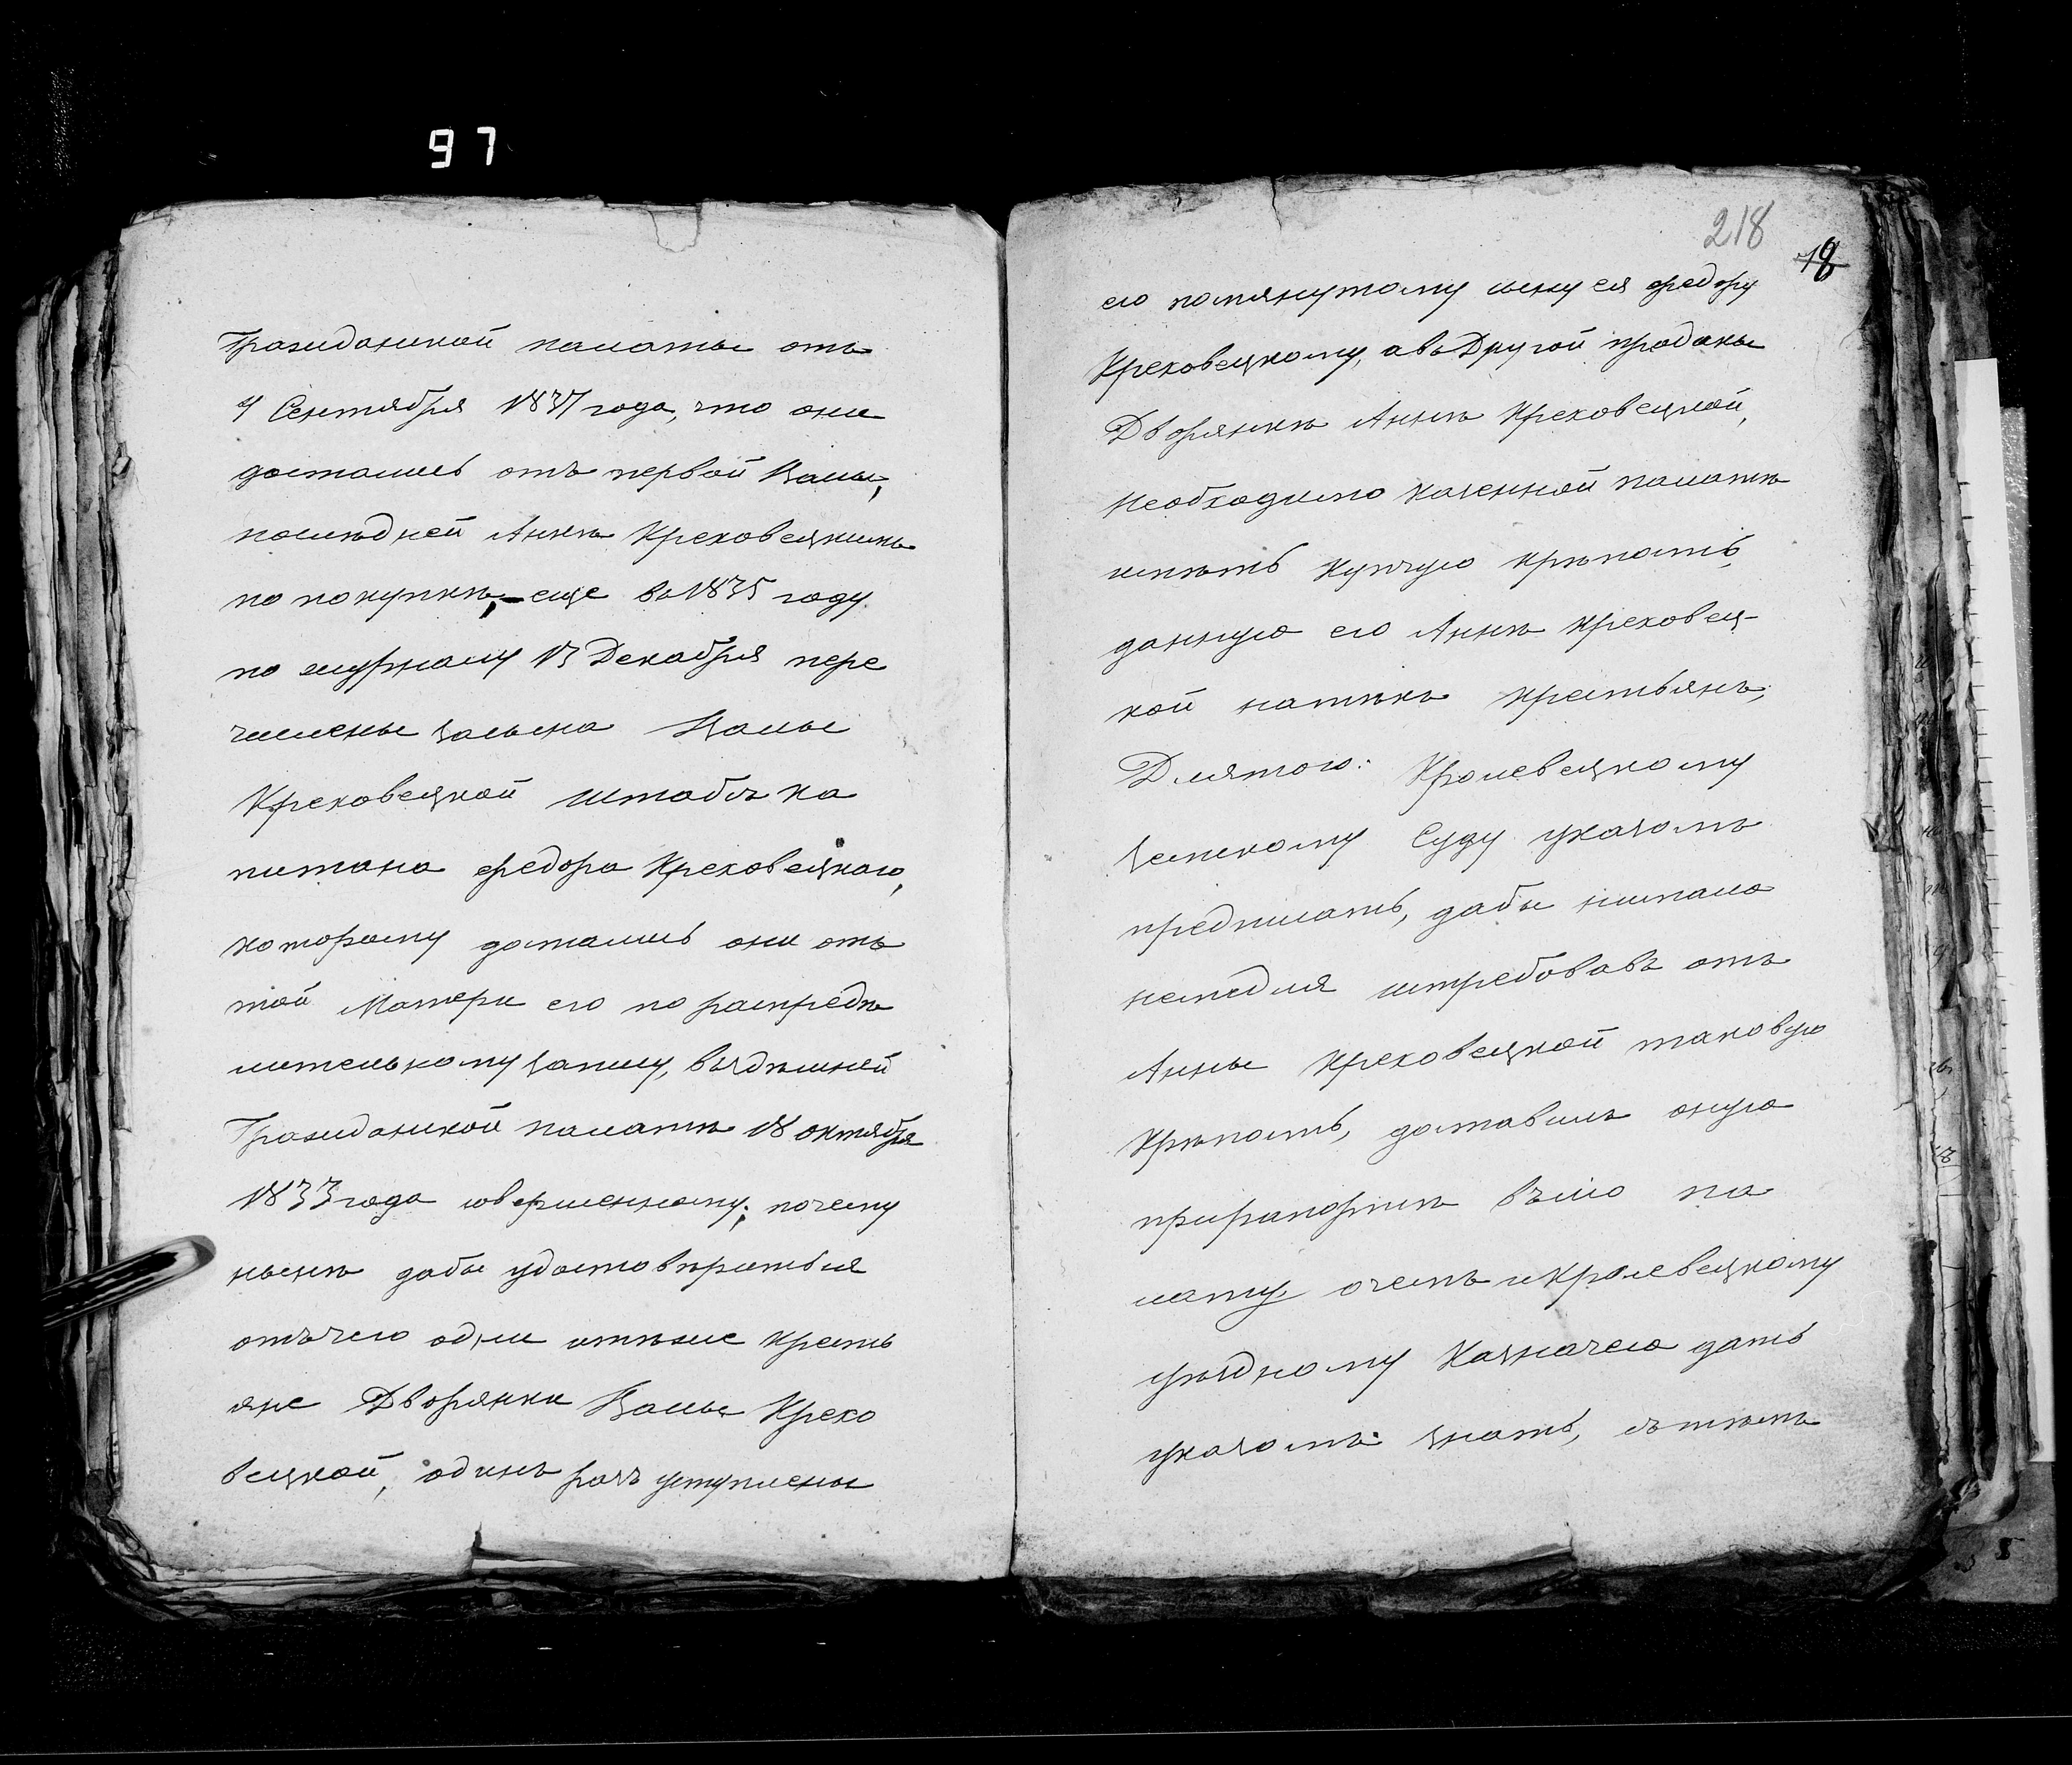 97
Гражданской палаты отъ
4 Сентября 1837 года, что они
достались отъ первой
последней Аннѣ Креховецкимъ
по покупкѣ, еще въ 1835 году
по журналу 13 Декабря пере
числены засына
Креховецкой штабсъ ка
питана Федора Креховецкаго,
которому достались они отъ
той Матери его по распредѣ
лительному запису, въздѣшней
Гражданской палатѣ 18 октября
1833 года совершенному; почему
нынѣ дабы удостовѣриться
отъчего одни итѣже кресть
яне Дворянки Крехо
вецкой, одинъ разъ уступлены
218
18
ею помянутому сыну ея Федору
Креховецкому, авъ Другой проданы
Дворянкѣ Аннѣ Креховецкой,
Необходимо казенной палатѣ
имѣть купчую крѣпость,
данную ею Аннѣ Креховец-
кой натѣхъ крестьянъ;
Длятого: Кролевецкому
земскому Суду указомъ
предписать, дабы нимало
немедля истребовавъ отъ
Анны Креховецкой таковую
Крѣпость, доставилъ оную
прирапортѣ въсію па
лату, очемъ иКролевецкому
уѣздному Казначею дать
указомъ знать, сътѣмъ